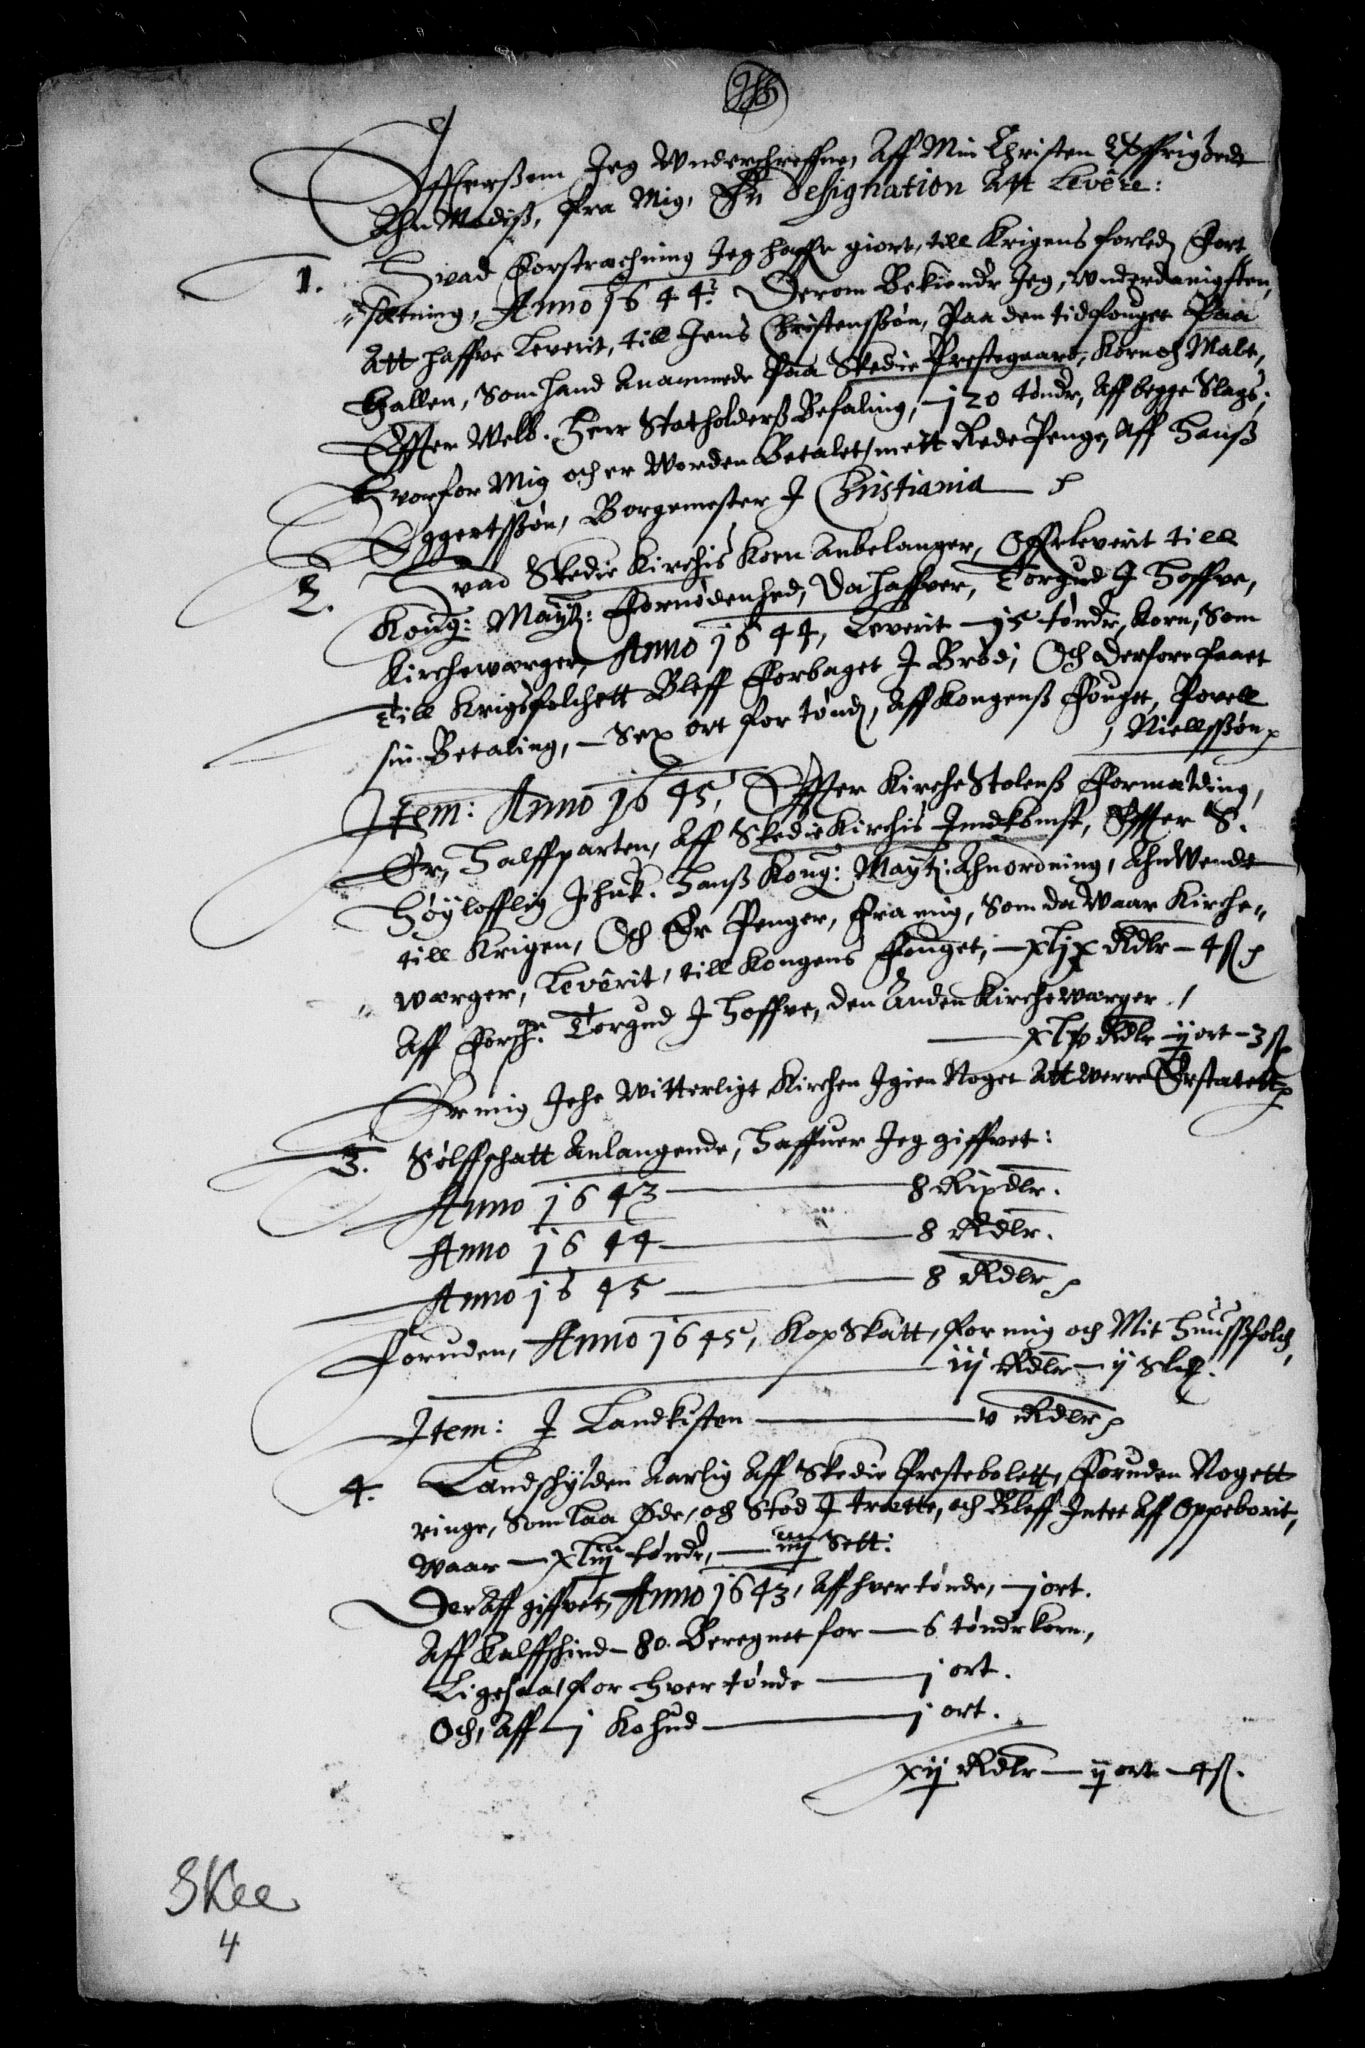 Effterßom Jeg Wnderschreffne, Aff Min Christen Øffrighede
Ahn Modiß, fra Mig, En Designation Att Levêre:
1. Hvad Forstrachning Jeg haffr giort, till Krigens forled Fort,,
,,sætning, Anno 1644? Derom Bekiendr Jeg, Wnderdanigsten,
Att haffve Leverit, till Jens Christenssøn, Paa den tid fouget Paa
Hallen, Som hand Anammede Paa Skedie Prestegaard, Korn och Malt,
Effter Welb. Herr Statholderß Befaling, 120 tøndr, Aff begge Slags;
Hvorfor Mig och er Worden Betalet mett Rede Penge, Aff Hanß
Eggertssøn, Borgemester J Christiania
2. Hvad Skedie Kirchis Korn Anbelanger, Offrleverit till
Kong: Maytz: Fornødenhed, Da haffver, Torgud J Hoffve,
Kirchewærger, Anno 1644, Leverit 15 tøndr, Korn, Som
till Krigsfolchett Bleff Forbaget J Brød; Och Derfore faaet
sin Betaling, Sex ort for tønd, Aff Kongenß Fouget, Povell
Niellssøn
Jtem: Anno 1645, Effter Kirche Stolenß Formalding,
Er, Halffparten, Aff Skedie Kirchis Jndkomst, Effter S.
Høylofflig Jhuk. Hanß Kong: Maytz: Ahnordning, Ahn Wendt
till Krigen, Och Er Penger, Fra mig, Som da Waar Kirche,,
,,wærger, Levêrit, till Kongens Fouget, xljx Rdlr 4 ß
Aff Forschr. Torgud J Hoffve, den Anden Kirchewærger
Rdlr ij ort 3 ß
Er mig Jche Witterligt Kirchen Jgien Noget Att werre Erstatett
3. Sølffschatt Anlangende, Haffuer Jeg giffvet:
Anno 1643 8 Rixdlr.
Anno 1644 8 Rdlr.
Anno 1645 8 Rdlr
Foruden, Anno 1645, KopSkatt, for mig och Mit Huussfolch,
iij Rdlr ij Skl.
Jtem: J Landkisten v Rdlr
4. Landschylden Aarlig Aff Skedie Prestebolett, Foruden Nogett
ringe, Som laa Øde, och Stod J trætte, och Bleff Jntet Aff Oppeborit,
Waar xliij tøndr, iiij Sett:
Der Aff giffvet, Anno 1643, Aff hver tønde, j ort.
Aff Kalffschind 80. Beregnet for 6 tøndr korn,
Ligesaa for hver tønde j ort.
Och, Aff j Kohud j ort.
xij Rdlr ij ort 4 ß.
Skee
4